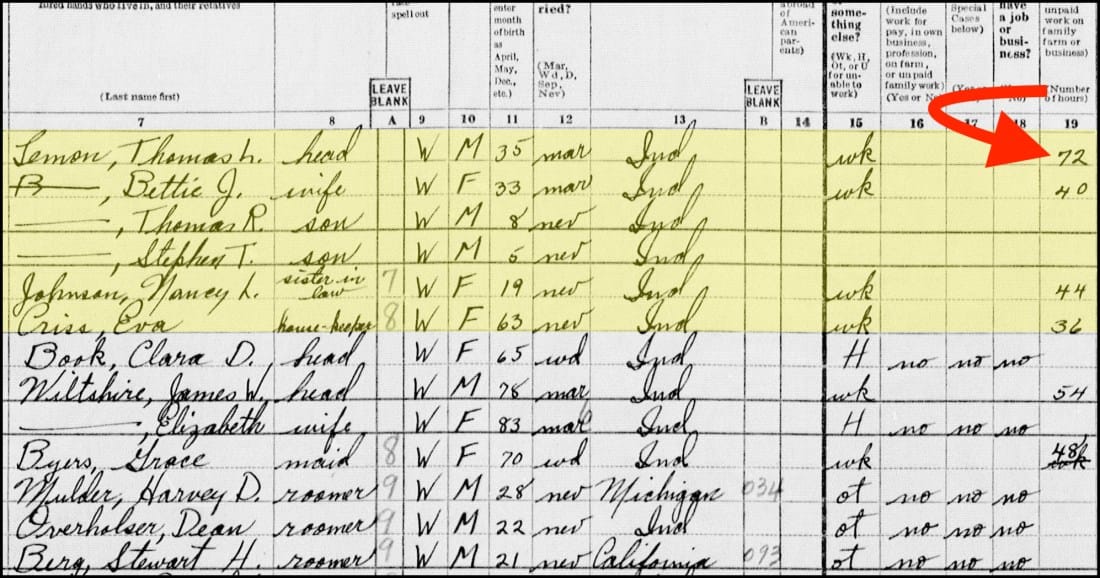 hired hands who live in, and their relatives
spell out
enter month of birth as April, May, Dec., etc.)
ried?
(Mar, Wd, D, Sep, Nev)
abroad of American parents)
some-thing else?
(Wk, H, Ot, or U for unable to work)
(Include work for pay, in own business, profession, on farm, or unpaid family work)
(Yes or No)
Special Cases below)
have a job or busi-ness?
unpaid work on family farm or business)
(Number of hours)
(Last name first)
LEAVE BLANK
LEAVE BLANK
7 8 A 9 10 11 12 13 B 14 15 16 17 18 19
Lemon, Thomas L. head W M 35 mar Ind wk 72
B—, Bettie J. wife W F 33 mar Ind wk 40
—, Thomas R. son W M 8 nev Ind
—, Stephen T. son W M 5 nev Ind
Johnson, Nancy L. sister in law 7 W F 19 nev Ind wk 44
Criss, Eva house-keeper 8 W F 63 nev Ind wk 36
Book, Clara D. head W F 65 wd Ind H no no no
Wiltshire, James W. head W M 78 mar Ind wk 54
—, Elizabeth wife W F 83 mar Ind H no no no
Byers, Grace maid 8 W F 70 wd Ind wk 48
Mulder, Harvey D. roomer 9 W M 28 nev Michigan 034 ot no no no
Overholser, Dean roomer 9 W M 22 nev Ind ot no no no
Berg, Stewart H. roomer 9 W M 21 nev California 093 ot no no no